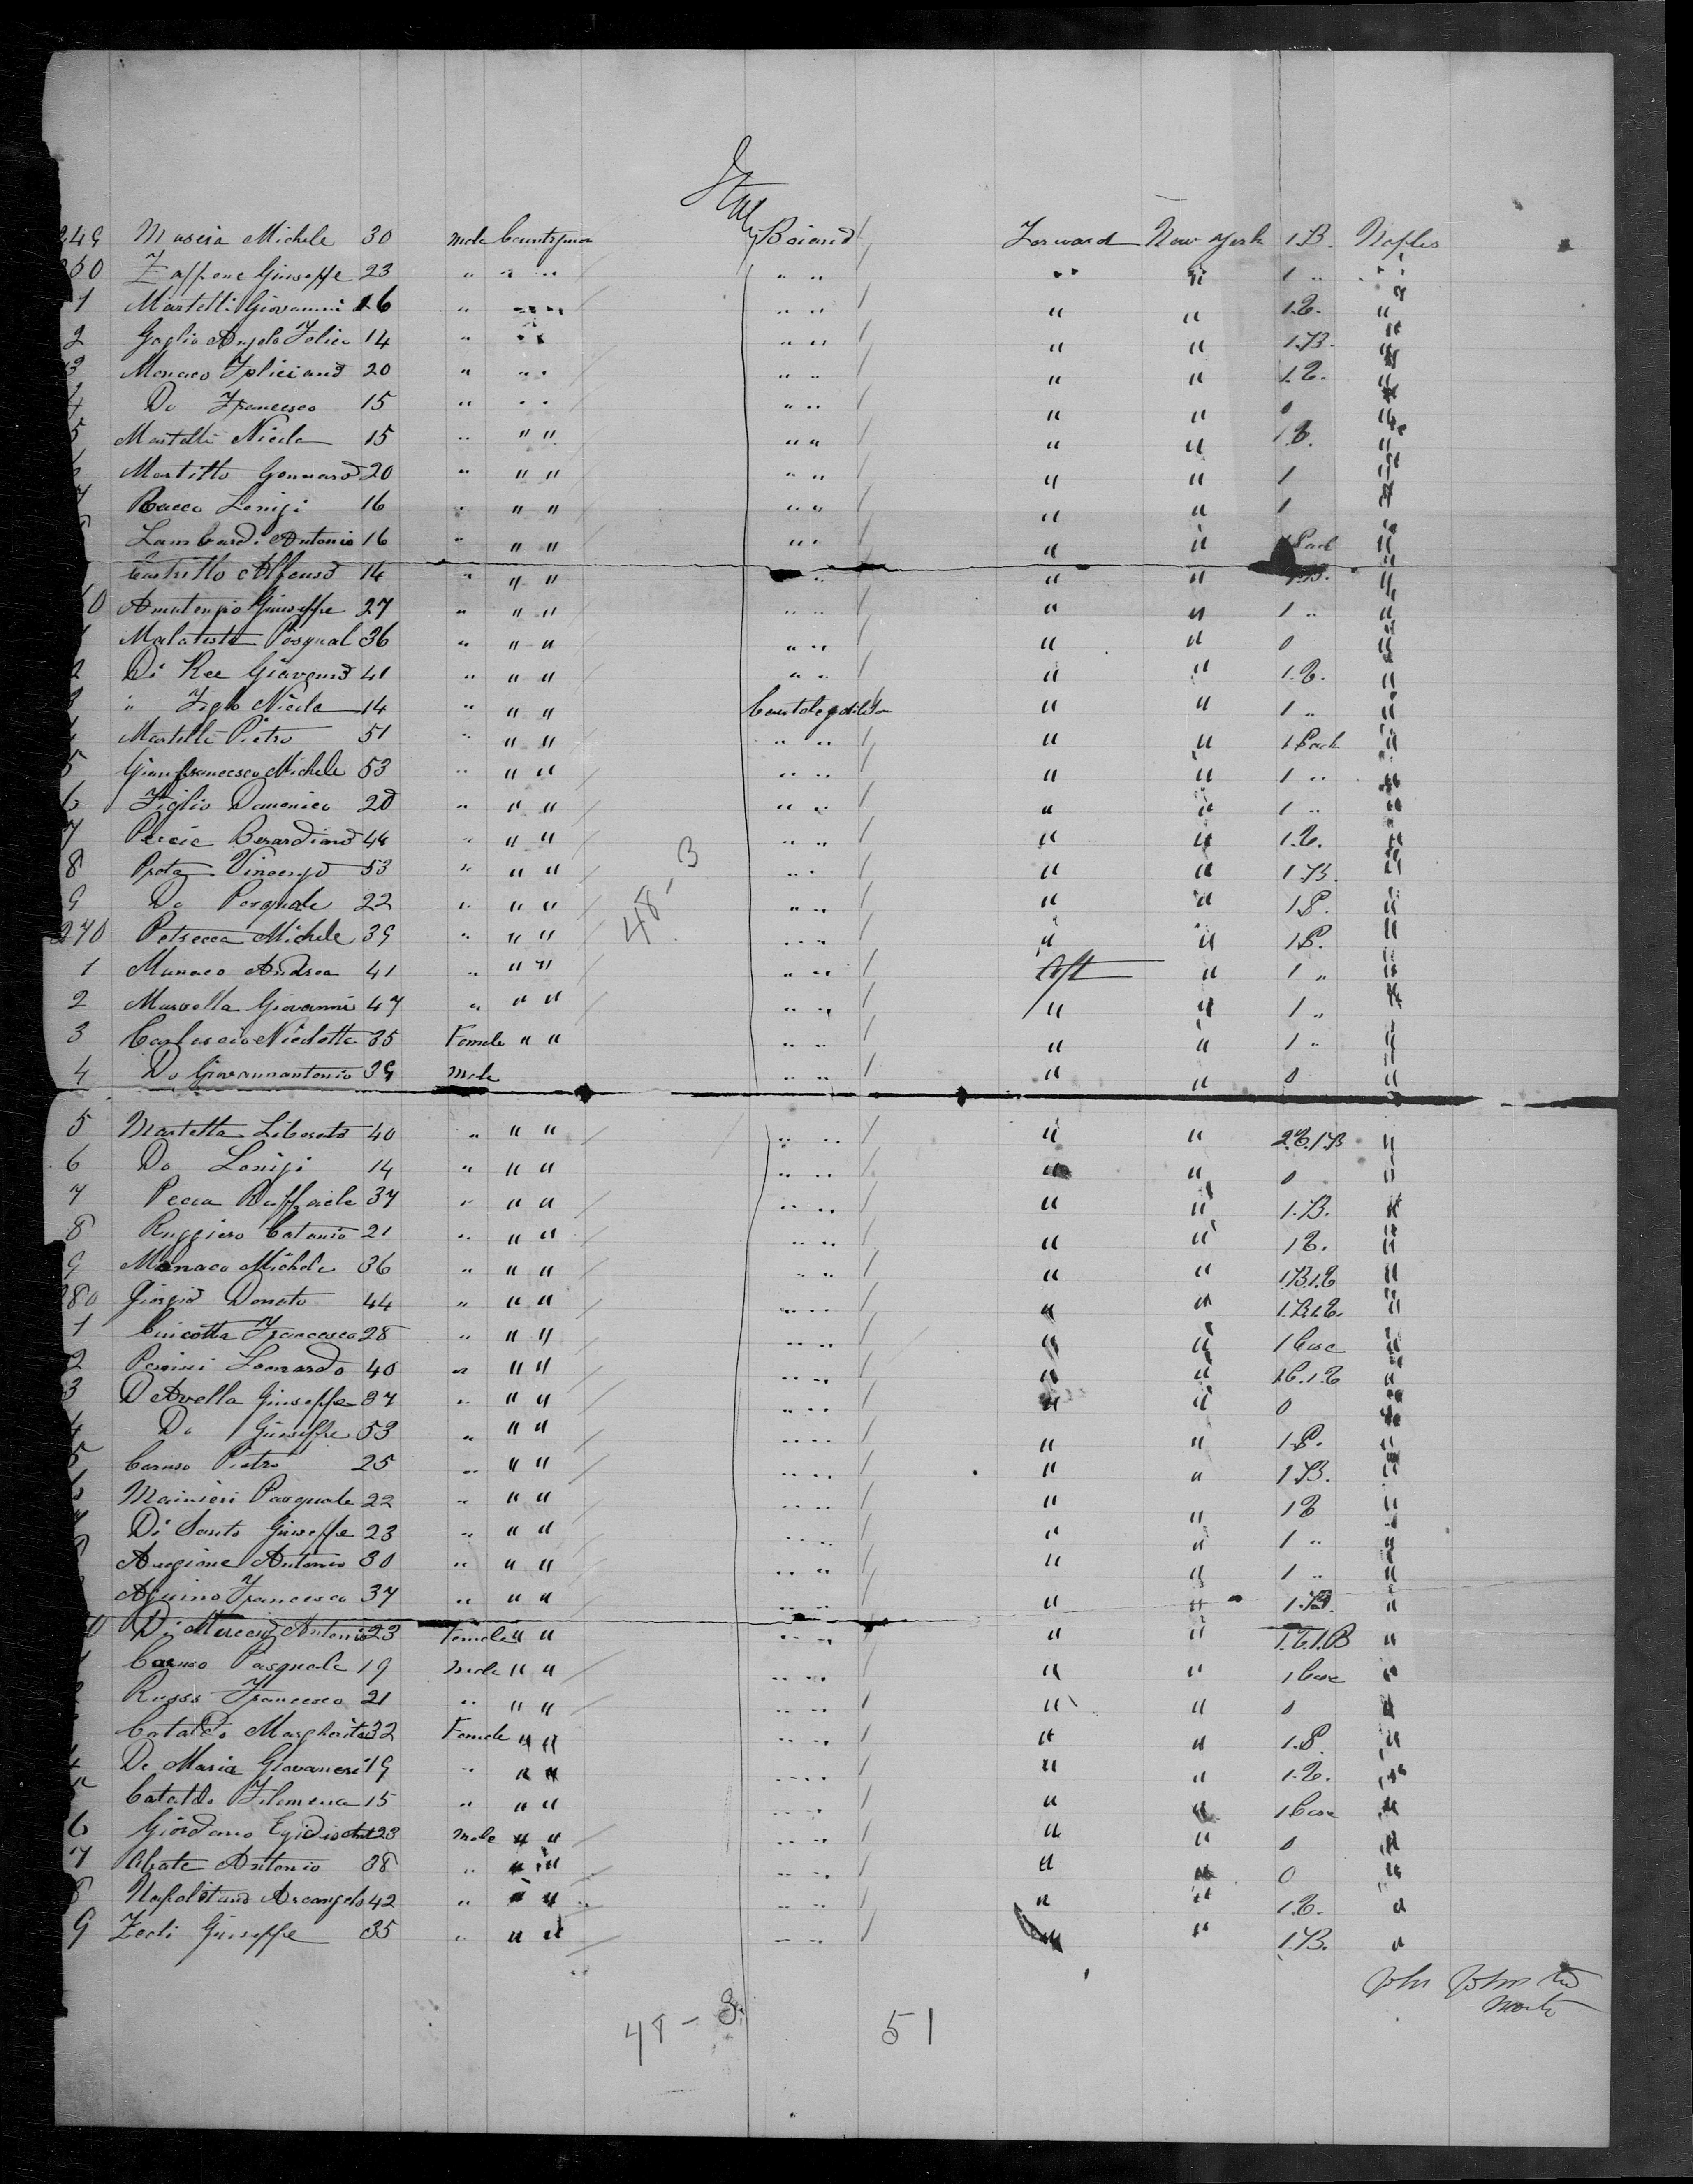 Italy
249 Muscia Michele 30 Male Countryman Boiano / Forward New York 1.B. Naples
250 Zappone Giuseppe 23 " " " " " / " " 1 " "
1 Martelli Giovanni 16 " " " " " / " " 1.B. "
2 Goglio Angelo Felice 14 " " " " " / " " 1.B. "
3 Monaco Feliciano 20 " " " " " / " " 1.B. "
4 Do Francesco 15 " " " " " / " " 0 "
5 Martelli Nicola 15 " " " " " / " " 1.B. "
Martitto Gennaro 20 " " " " " / " " 1 "
Rocco Luigi 16 " " " " " / " " 1 "
Lombardi Antonio 16 " " " " " / " " 1 Pack "
Castritto Alfonso 14 " " " " " / " " 1.B. "
0 Amatenzio Giuseppe 27 " " " " " / " " 1 " "
Malatesta Pasqual 36 " " " " " / " " 0 "
2 Di Ree Giovanni 41 " " " " " / " " 1.B. "
3 " Figlo Nicola 14 " " " / " " 1 " "
Martelli Pietro 51 " " " " " / " " 1 Pack "
5 Gianfrancesco Michele 53 " " " " " / " " 1 " "
6 Figlio Domenico 20 " " " " " / " " 1 " "
7 Peccia Berardino 44 " " " " " / " " 1.B. "
8 Prota Vincenzo 53 " " " " " / " " 1.B. "
9 Do Pasquale 22 " " " " " / " " 1.P. "
270 Petrecca Michele 39 " " " " " / " " 1.P. "
48-3
1 Munaco Andrea 41 " " " " " / Aft " 1 " "
2 Marvella Giovanni 47 " " " " " / " " 1 " "
3 Carluccio Nicoletta 35 Female " " " " / " " 1 " "
4 Do Giovannantonio 39 Male " " / " " 0 "
5 Martella Liberato 40 " " " " " / " " 2.B.1.B "
6 Do Luigi 14 " " " " " / " " 0 "
7 Pecca Raffaele 37 " " " " " / " " 1.B. "
8 Ruggiero Catanio 21 " " " " " / " " 1 B. "
9 Monaco Michele 36 " " " " " / " " 1.B.1.B "
280 Giorgio Donato 44 " " " " " / " " 1.B.1.B. "
1 Cuicotta Francesco 28 " " " " " / " " 1 Case "
2 Perini Leonardo 40 " " " " " / " " 1.C.1.B "
3 D'Avella Giuseppe 37 " " " " " / " " 0 "
4 Do Giuseppe 53 " " " " " / " " 1.P. "
5 Caruso Pietro 25 " " " " " / " " 1.B. "
6 Mainieri Pasquale 22 " " " " " / " " 1 B "
Di Santo Giuseppe 23 " " " " " / " " 1 " "
Aurgione Antonio 30 " " " " " / " " 1 " "
Aquino Francesco 37 " " " " " / " " 1.B. "
0 Di Antonio 23 Female " " " " / " " 1.B.1.B "
Caruso Pasquale 19 Male " " " " / " " 1 Case "
Russo Francesco 21 " " " " " / " " 0 "
Cataldo Margherita 32 Female " " " " / " " 1.P. "
4 De Maria Giovanni 19 " " " " " / " " 1.B. "
5 Cataldo Filomena 15 " " " " " / " " 1 Case "
6 Giordano Egidio Ant 23 Male " " " " / " " 0 "
7 Abate Antonio 38 " " " " " / " " 0 "
8 Napolitano Arcangelo 42 " " " " " / " " 1.B. "
9 Zeoli Giuseppe 35 " " " " " / " " 1.B. "
John Johnsten
48-3 51